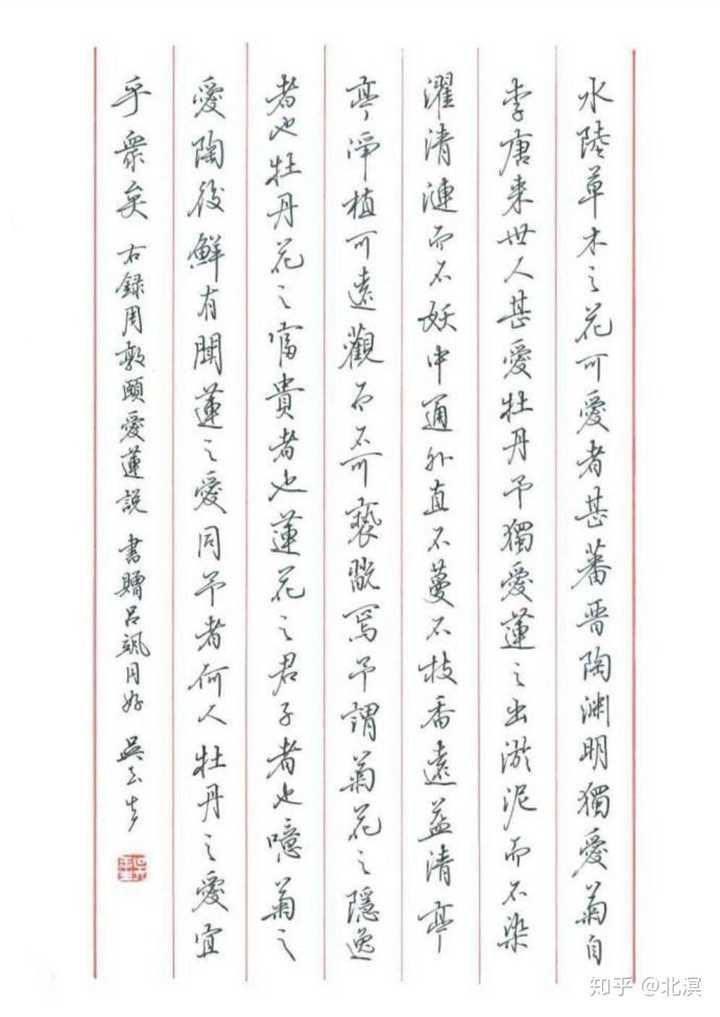 水陸草木之花可愛者甚蕃晋陶渊明獨愛菊自
李唐来世人甚愛牡丹予獨愛蓮之出淤泥而不染
濯清漣而不妖中通外直不蔓不枝香遠益清亭
亭淨植可遠觀而不可褻翫焉予謂菊花之隱逸
者也牡丹花之富貴者也蓮花之君子者也噫菊之
愛陶後鮮有聞蓮之愛同予者何人牡丹之愛宜
乎衆矣 右録周敦頤愛蓮説 書贈呂颯同好 吴玉生
知乎 @北溟